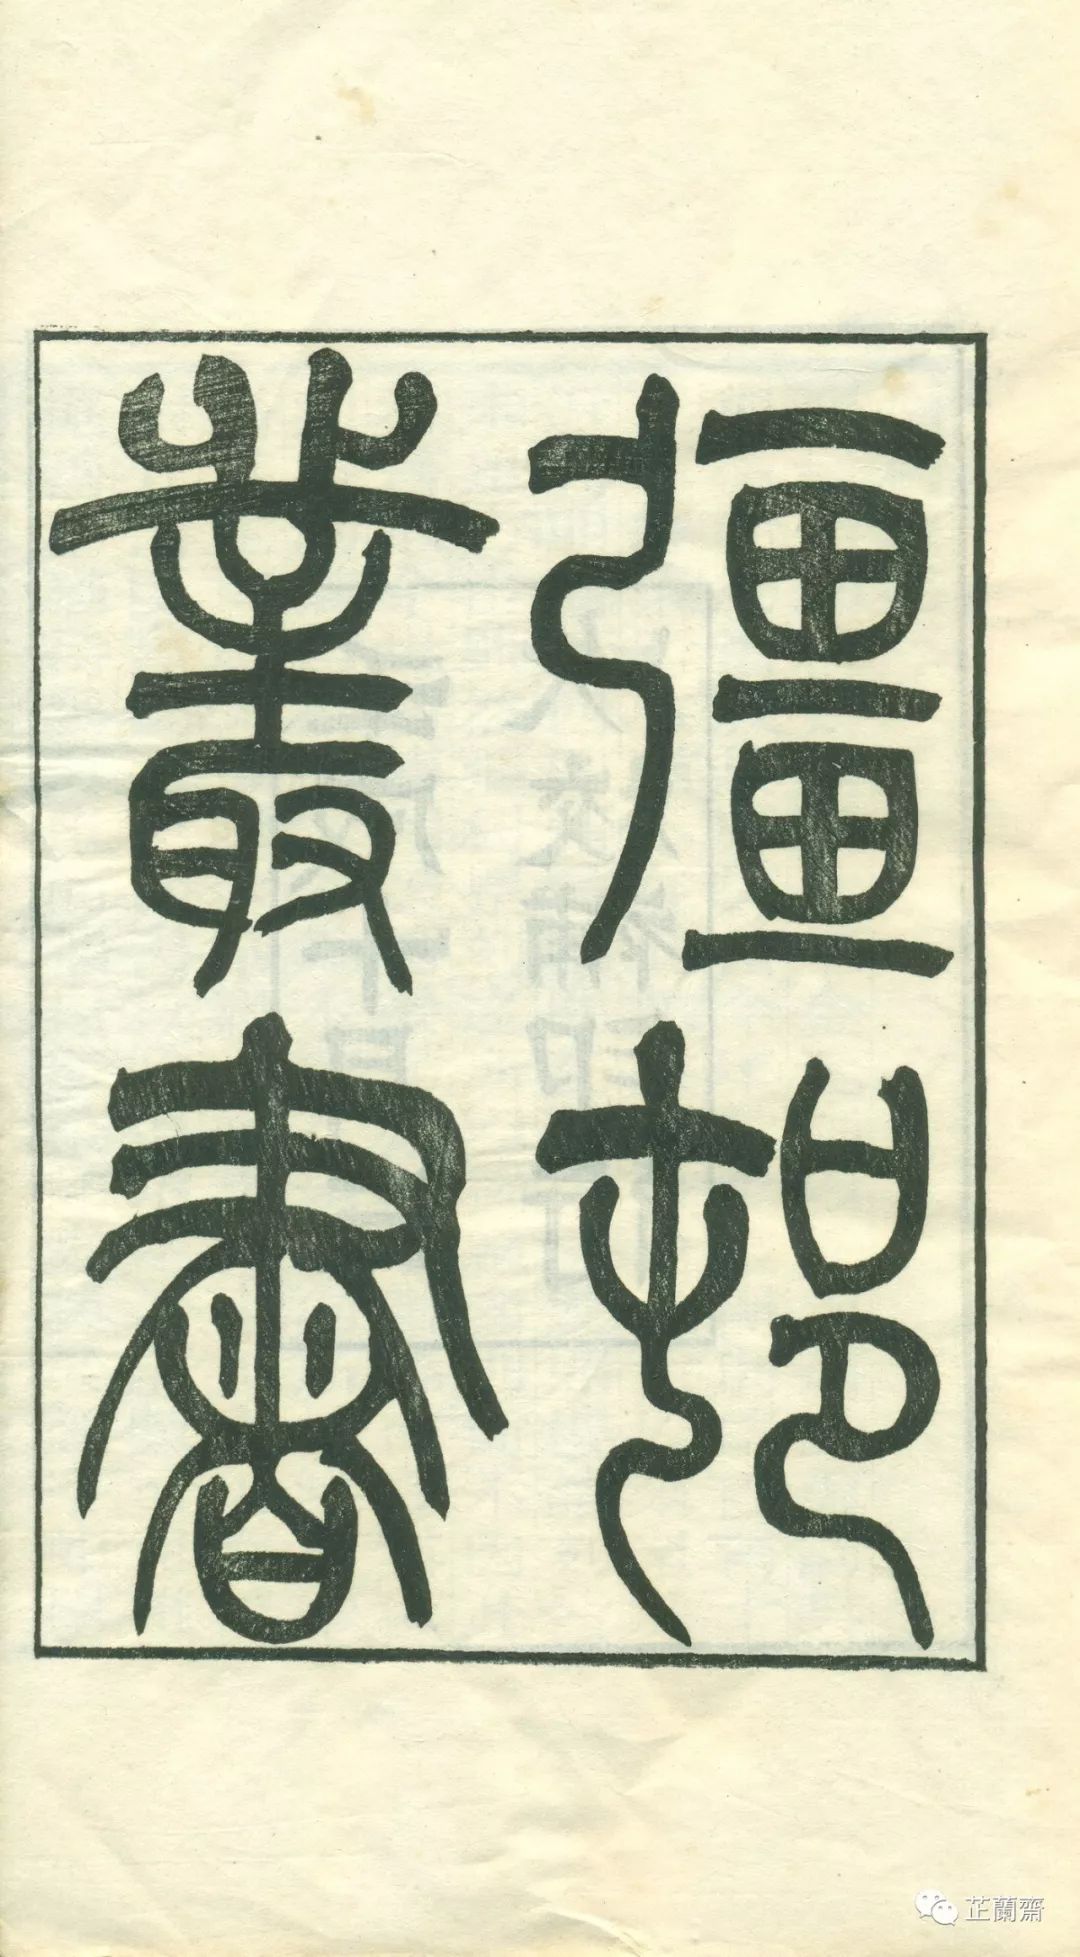 彊邨
叢書
芷蘭齋